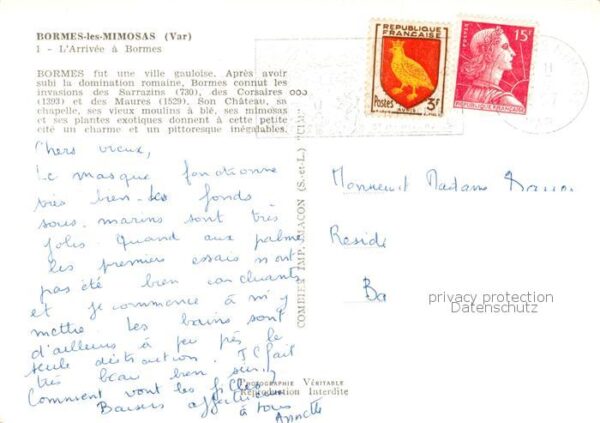 BORMES-les-MIMOSAS (Var)
1 - L'Arrivée à Bormes
BORMES fut une ville gauloise. Après avoir
subi la domination romaine, Bormes connut les
invasions des Sarrazins (730), des Corsaires
(1393) et des Maures (1529). Son Château, sa
chapelle, ses vieux moulins à blé, ses mimosas
et ses plantes exotiques donnent à cette petite
cité un charme et un pittoresque inégalables.
Chers vieux,
Le masque fonctionne
très bien. Les fonds
sous-marins sont très
jolis. Quand aux palmes
les premiers essais n'ont
pas été bien concluants
et je commence à m'y
mettre. Les bains sont
d'ailleurs à peu près la
seule distraction. Il fait
très beau bien sûr.
Comment vont les filles
Baisers affectueux
à tous
Annette
COMBIER IMP. MACON (S.-et-L.) "CIM"
PHOTOGRAPHIE VÉRITABLE
Reproduction Interdite
REPUBLIQUE
FRANÇAISE
Postes
3F
15F
POSTES
REPUBLIQUE FRANÇAISE
Monsieur et Madame
Reside
Ba
privacy protection
Datenschutz